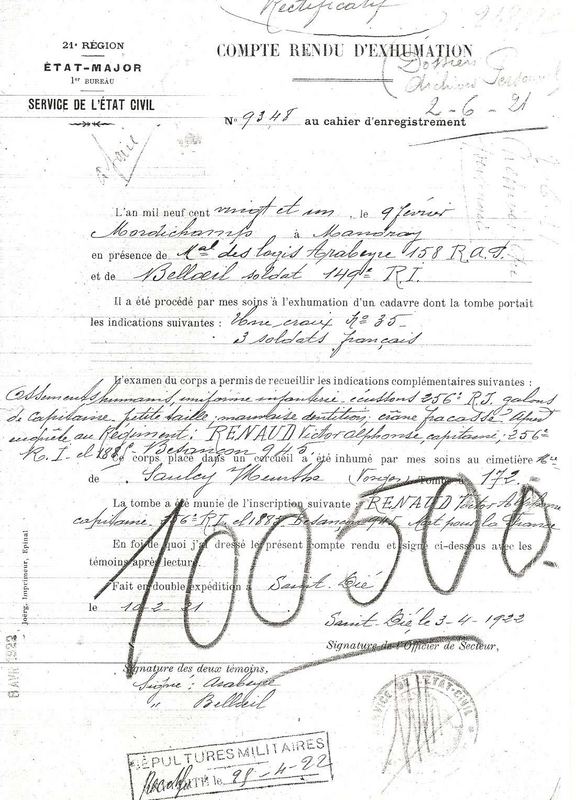 Rectificatif
21e RÉGION
ÉTAT-MAJOR
1er BUREAU
SERVICE DE L'ÉTAT CIVIL
COMPTE RENDU D'EXHUMATION
Dossier
Archives Personnel
2-6-21
No 9348 au cahier d'enregistrement
à faire
L'an mil neuf cent vingt et un, le 9 février
Mordichamp à Mandray
en présence de Mal des logis Arabeyre 158 R.A.P.
et de Bellœil soldat 149e R.I.
Il a été procédé par mes soins à l'exhumation d'un cadavre dont la tombe portait
les indications suivantes : Une croix No 35
3 soldats français
L'examen du corps a permis de recueillir les indications complémentaires suivantes :
Ossements humains, uniforme infanterie, écussons 256e R.I, galons
de capitaine, petite taille, mauvaise dentition, crâne fracassé. Après
enquête au Régiment: RENAUD Victor Alphonse capitaine, 256e
R.I. cl 1885 - Besançon 945
Ce corps placé dans un cercueil a été inhumé par mes soins au cimetière
de Saulcy Meurthe (Vosges) Tombe 172
La tombe a été munie de l'inscription suivante : RENAUD Victor Alphonse
capitaine, 256e R.I. cl 1885 Besançon 945 Mort pour la France
En foi de quoi j'ai dressé le présent compte rendu et signé ci-dessous avec les
témoins après lecture.
100500
Fait en double expédition à Saint-Dié
le 10-2-21
Saint Dié, le 3-4-1922
Signature de l'Officier de Secteur,
Signature des deux témoins,
Signé : Arabeyre
" Bellœil
Joërg, Imprimeur, Epinal
SERVICE DE L'ETAT-CIVIL
SÉPULTURES MILITAIRES
DATE le 25-4-22